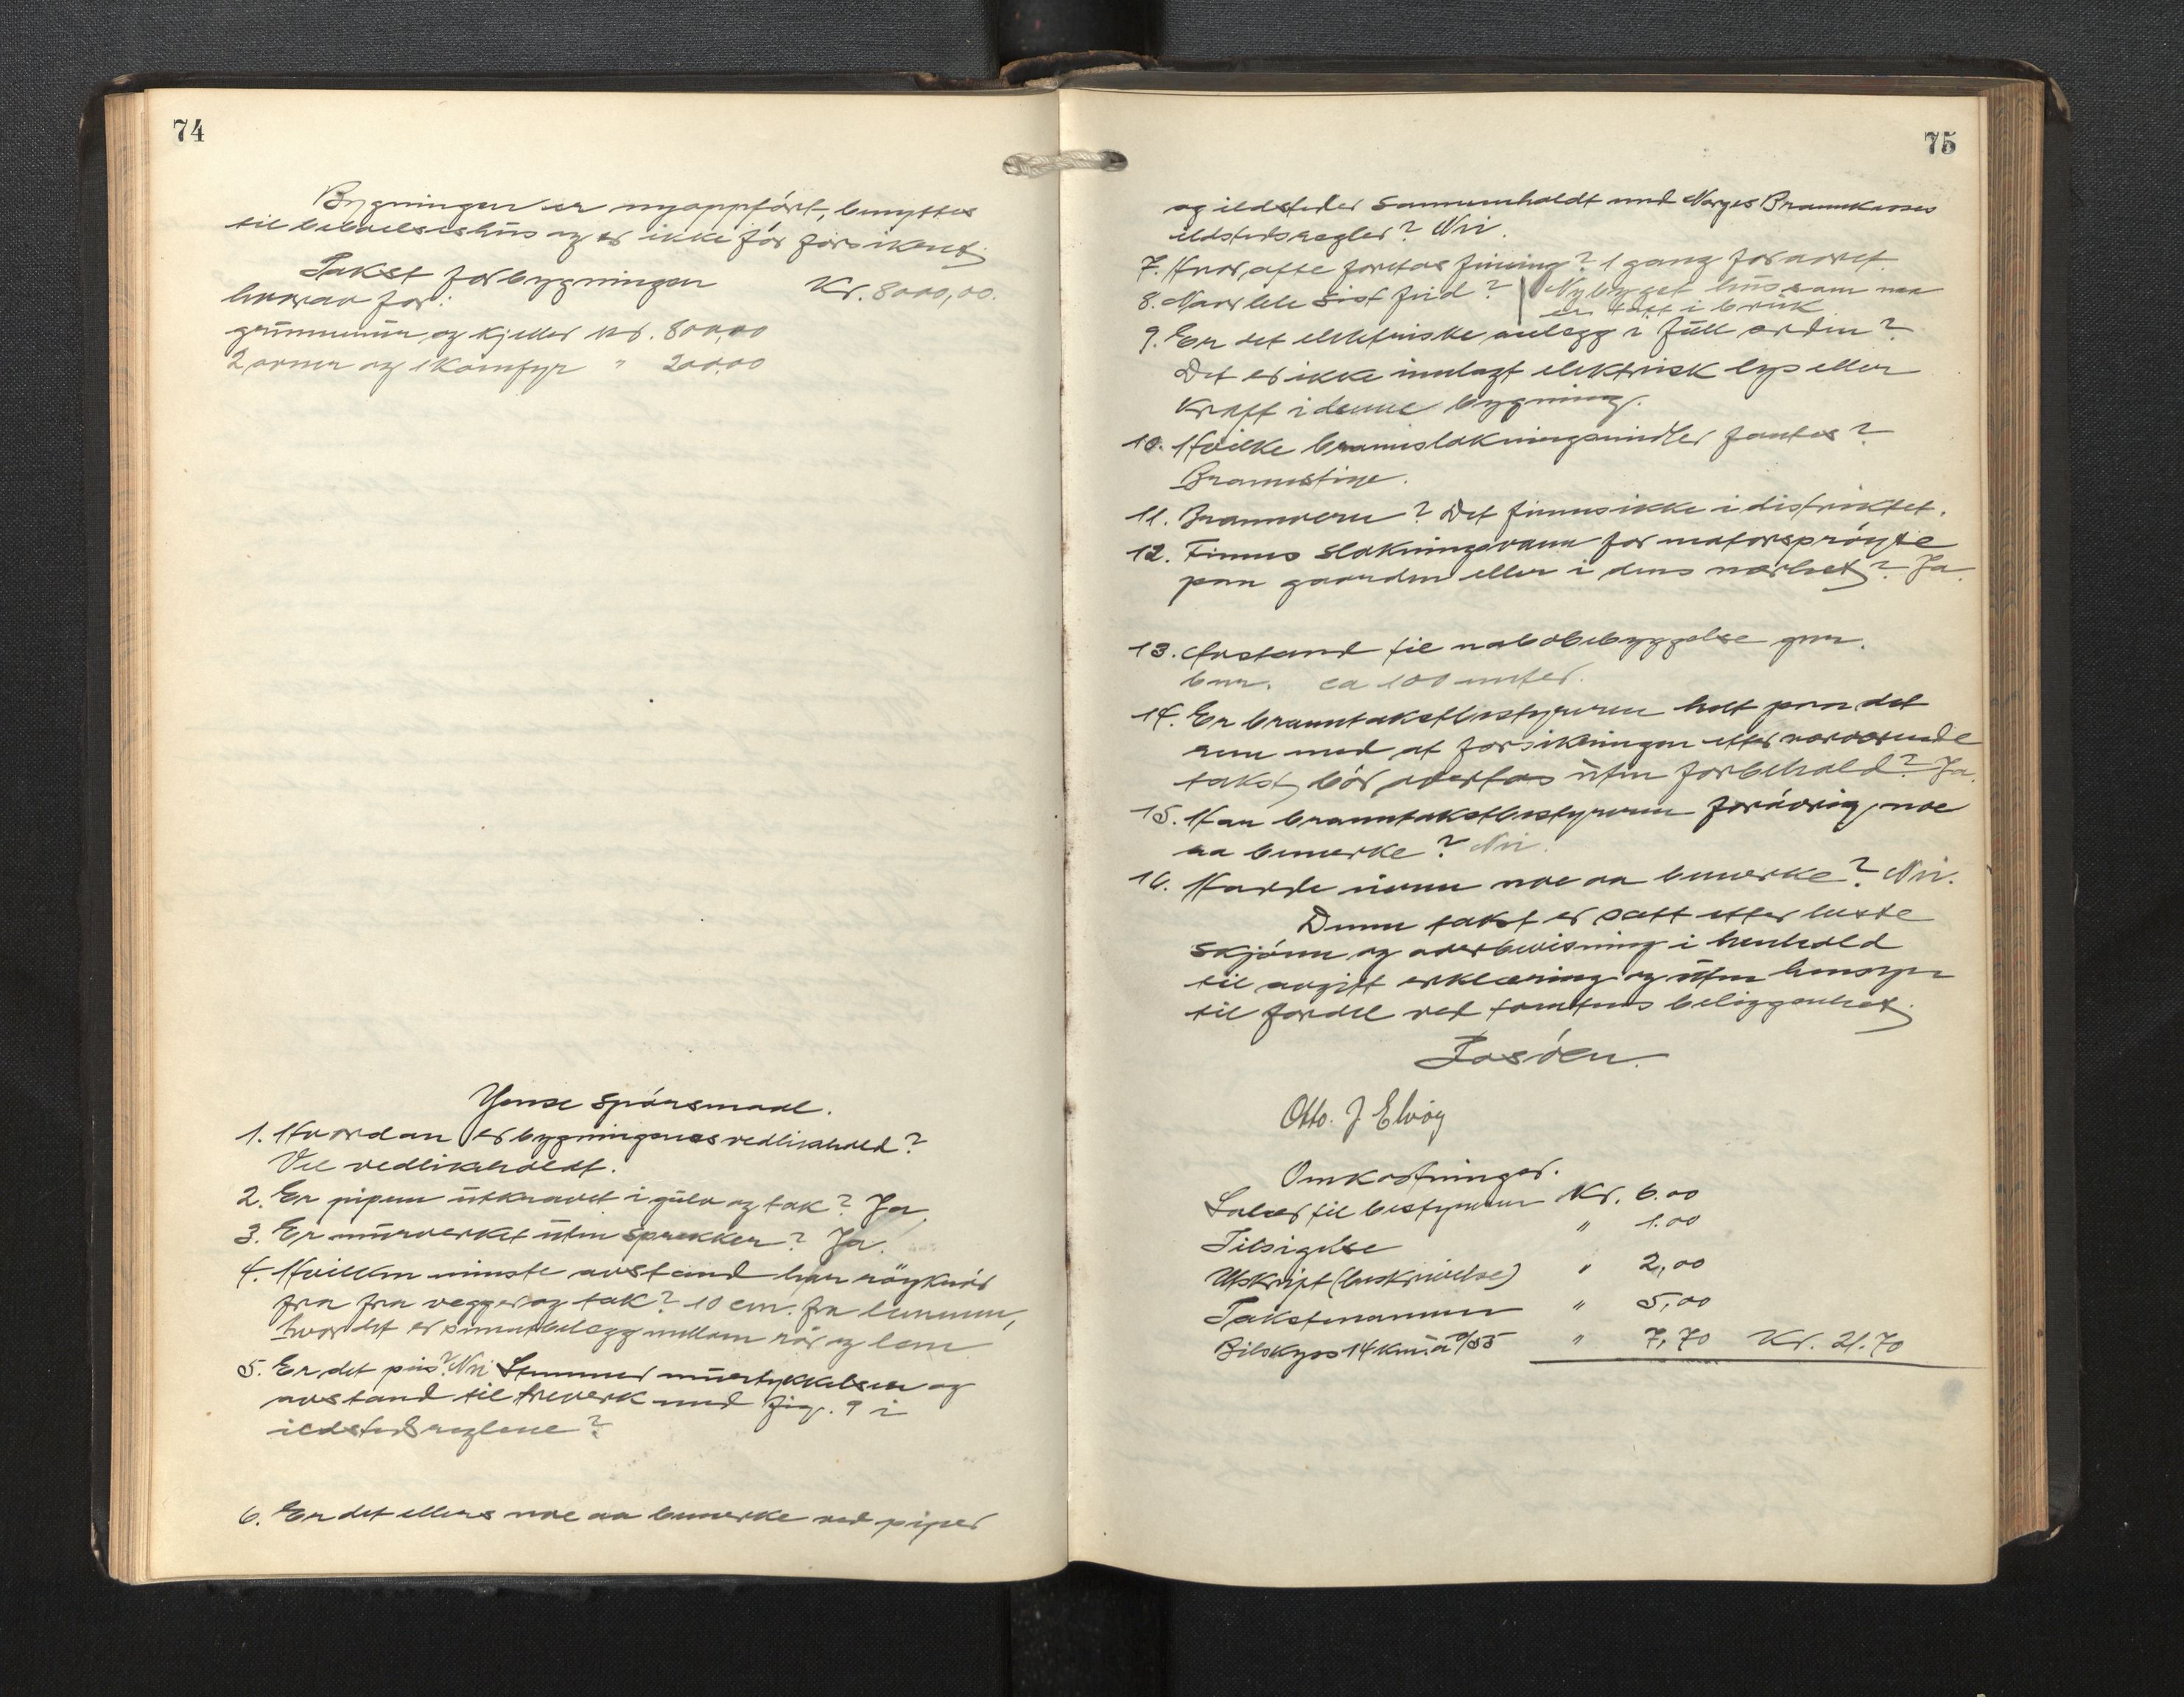 74
Bygningen er nyoppfört, benyttes
til beboelseshüs og er ikke för forsikret.
Takst for bygningen Kr. 8000,00.
hvorav for:
grünnmür og kjeller Kr. 800,00
2 ovner og 1 komfyr " 200,00
Ymse spörsmaal.
1. Hvordan er bygningenes vedlikehold?
Vel vedlikeholdt.
2. Er pipene ütkravet i gülv og tak? Ja
3. Er mürverket üten sprekker? Ja.
4. Hvilken minste avstand har röykrör
fra fra vegger og tak? 10 cm. fra lemmen,
hvor det er belegg mellem rör og lem
5. Er det peis? Nei Stemmer mürtykkelsen og
avstand til treverk med fig. 9 i
ildstedsreglene?
6. Er det ellers noe aa bemerke ved piper
75
og ildsteder sammenholdt med Norges Brannkasses
ildstedsregler? Nei.
7. Hvor ofte foretas feiing? 1 gang for aaret.
8. Naar ble sist feid? Nybygget hüs som naa
er tatt i brük
9. Er det elektriske anlegg i füll orden?
Det er ikke innlagt elektrisk lys eller
kraft i denne bygning.
10. Hvilke brannslokningsmidler fantes?
Brannstige.
11. Brannvern? Det finnes ikke i distriktet.
12. Finnes slokningsvann for motorspröyte
paa gaarden eller i dens nærhet? Ja.
13. Avstand til nabobebyggelse gnr.
bnr. ca 100 meter.
14. Er branntakstbestyreren helt paa det
rene med at forsikringen etter nærværende
takst, bör overtas üten forbehold? Ja.
15. Har branntakstbestyreren forövrig noe
aa bemerke? Nei.
16. Hadde noe aa bemerke? Nei.
Denne takst er satt etter beste
skjönn og overbevisning i henhold
til avgitt erklæring og üten hensyn
til fordel ved tomtens beliggenhet.
Losöen.
Otto. J Elvöy
Omkostninger.
Salær til bestyreren Kr. 6.00
Tilsigelse " 1.00
Utskript (beskrivelse) " 2,00
Takstmannen " 5,00
Bilskyss 14 km. a 0/55 " 7,70 Kr. 21.70